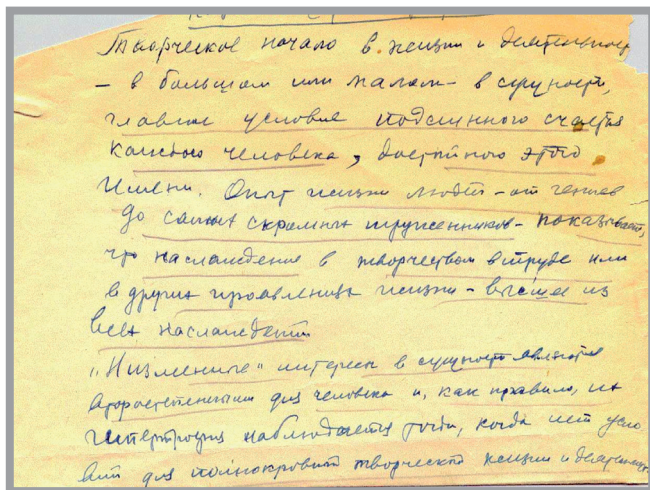 Творческое начало в жизни и деятельност
– в большом или малом – в сущности,
главное условие подлинного счастья
каждого человека, достойного этого
имени. Опыт жизни людей – от гениев
до самых скромных тружеников – показывает,
что наслаждение в творческом труде или
в других проявлениях жизни – высшее из
всех наслаждений.
„Низменные" интересы в сущности являются
второстепенными для человека и, как правило, их
гипертрофия наблюдается тогда, когда нет усло
вий для полнокровной творческой жизни и деятельнос